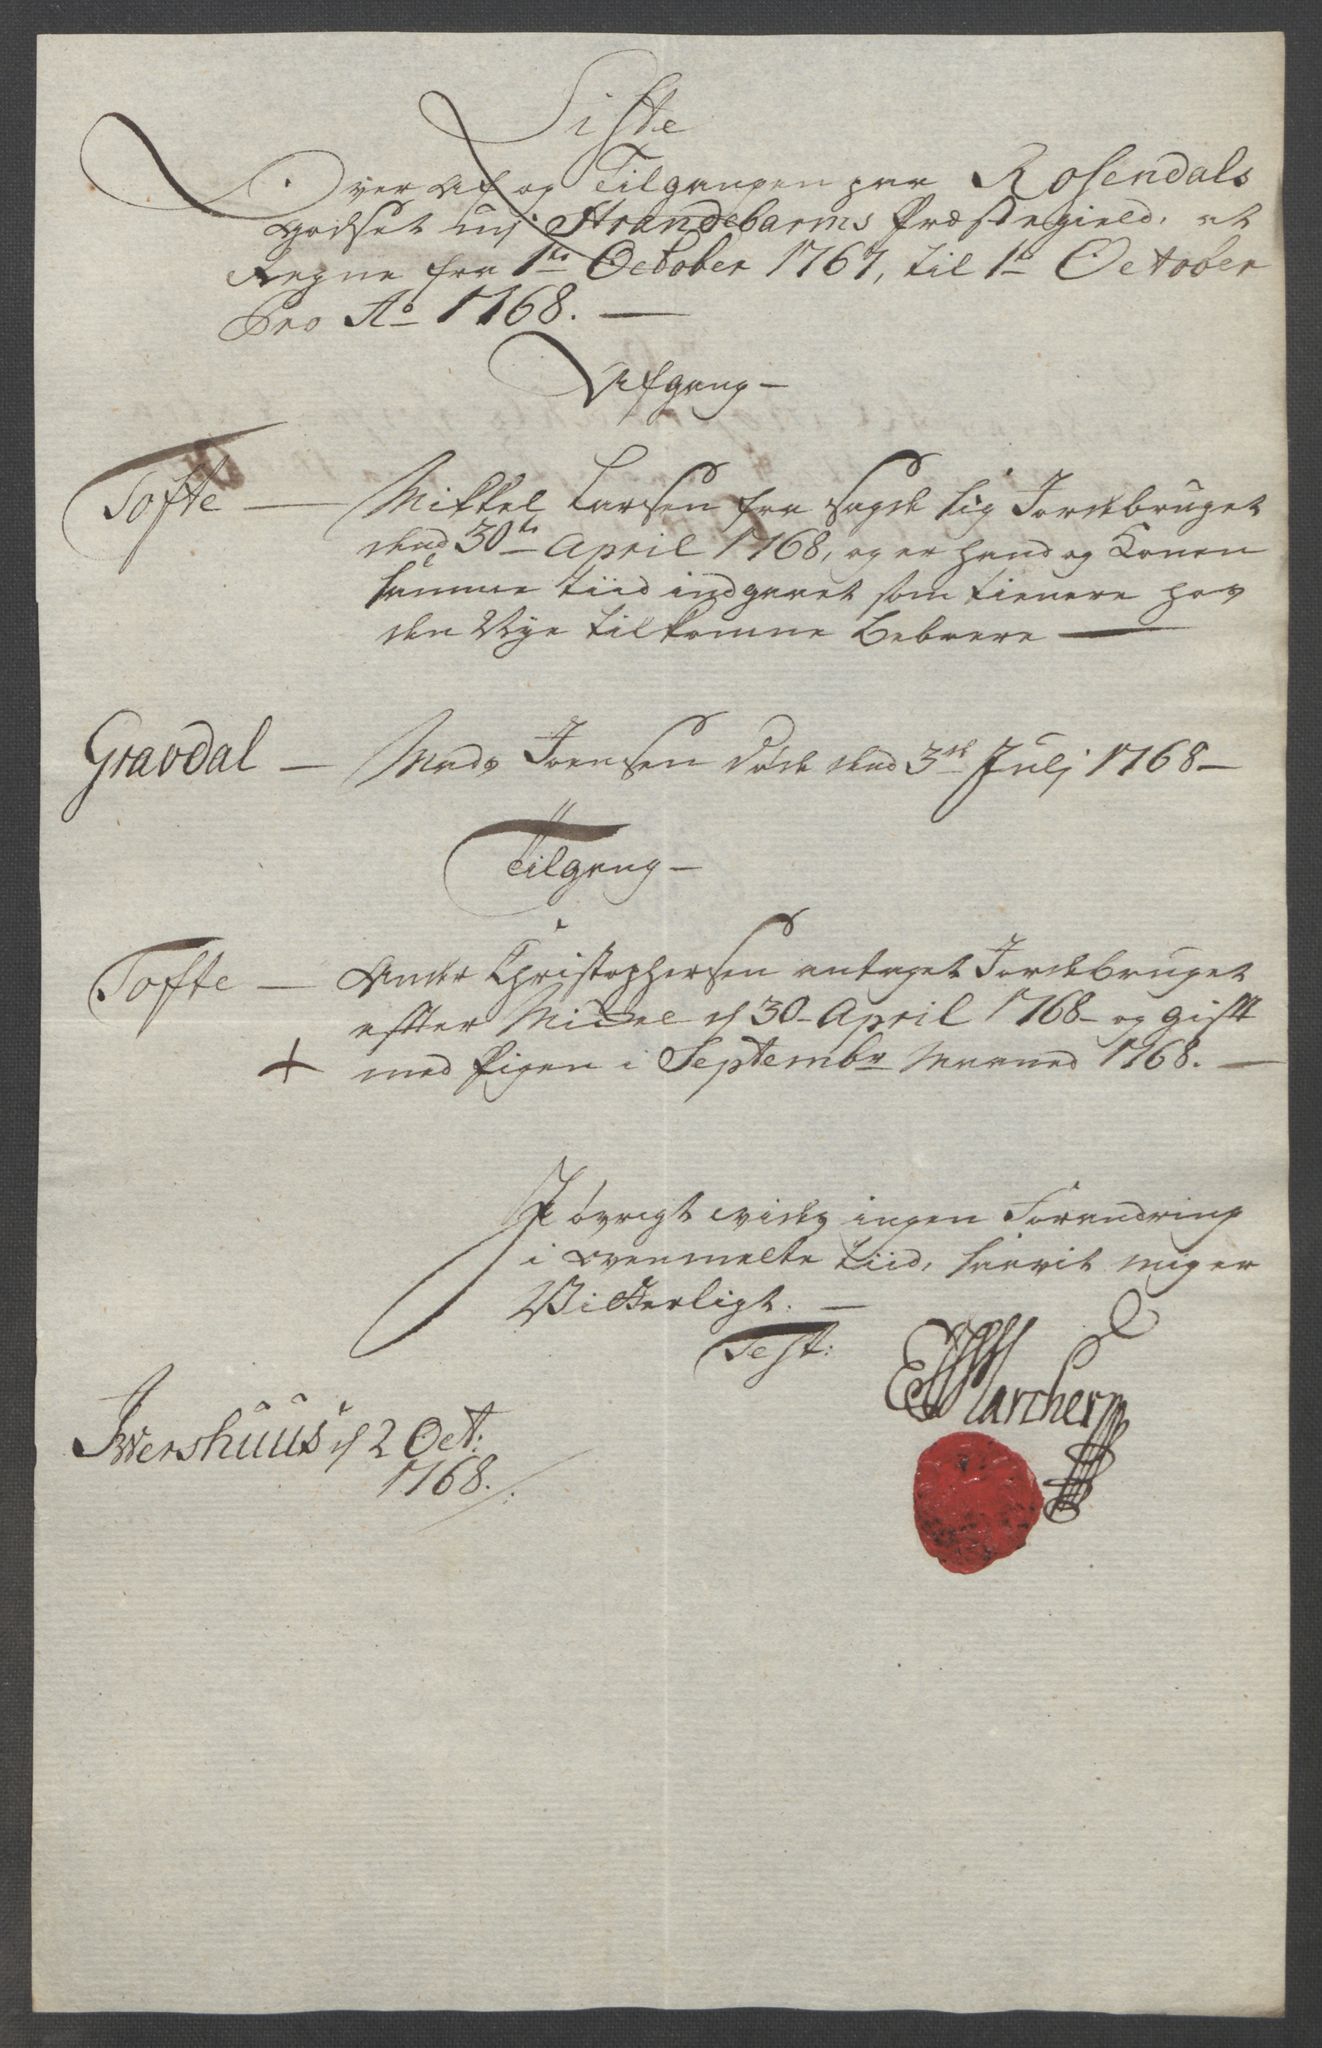 Liste
Over Af og Tilgangen paa Rosendals
Godset udj Strandebarms Præstegield, at
Regne fra 1te October 1767, til 1te October
Pro Ao 1768. —
Afgang —
Tofte — Mikkel Larsen fra sagde sig Jordebruget
dend 30te April 1768, og er hand og Konen
samme tiid indgaaet som tienere hos
den Nye tilkomne Beboere —
Gravdal — Mads Joensen døde dend 3de Julj 1768 —
Tilgang —
Tofte — Ander Christophersen antaget Jordebruget
efter Mickel d 30 April 1768 og gift
+ med Pigen i Septembr Maaned 1768. —
J øvrigt vides ingen Forandring
i ovenmelte tiid, saavit mig er
Vitterligt. —
Test:
E Marcher
Jwershuus d 2 Oct:
1768.